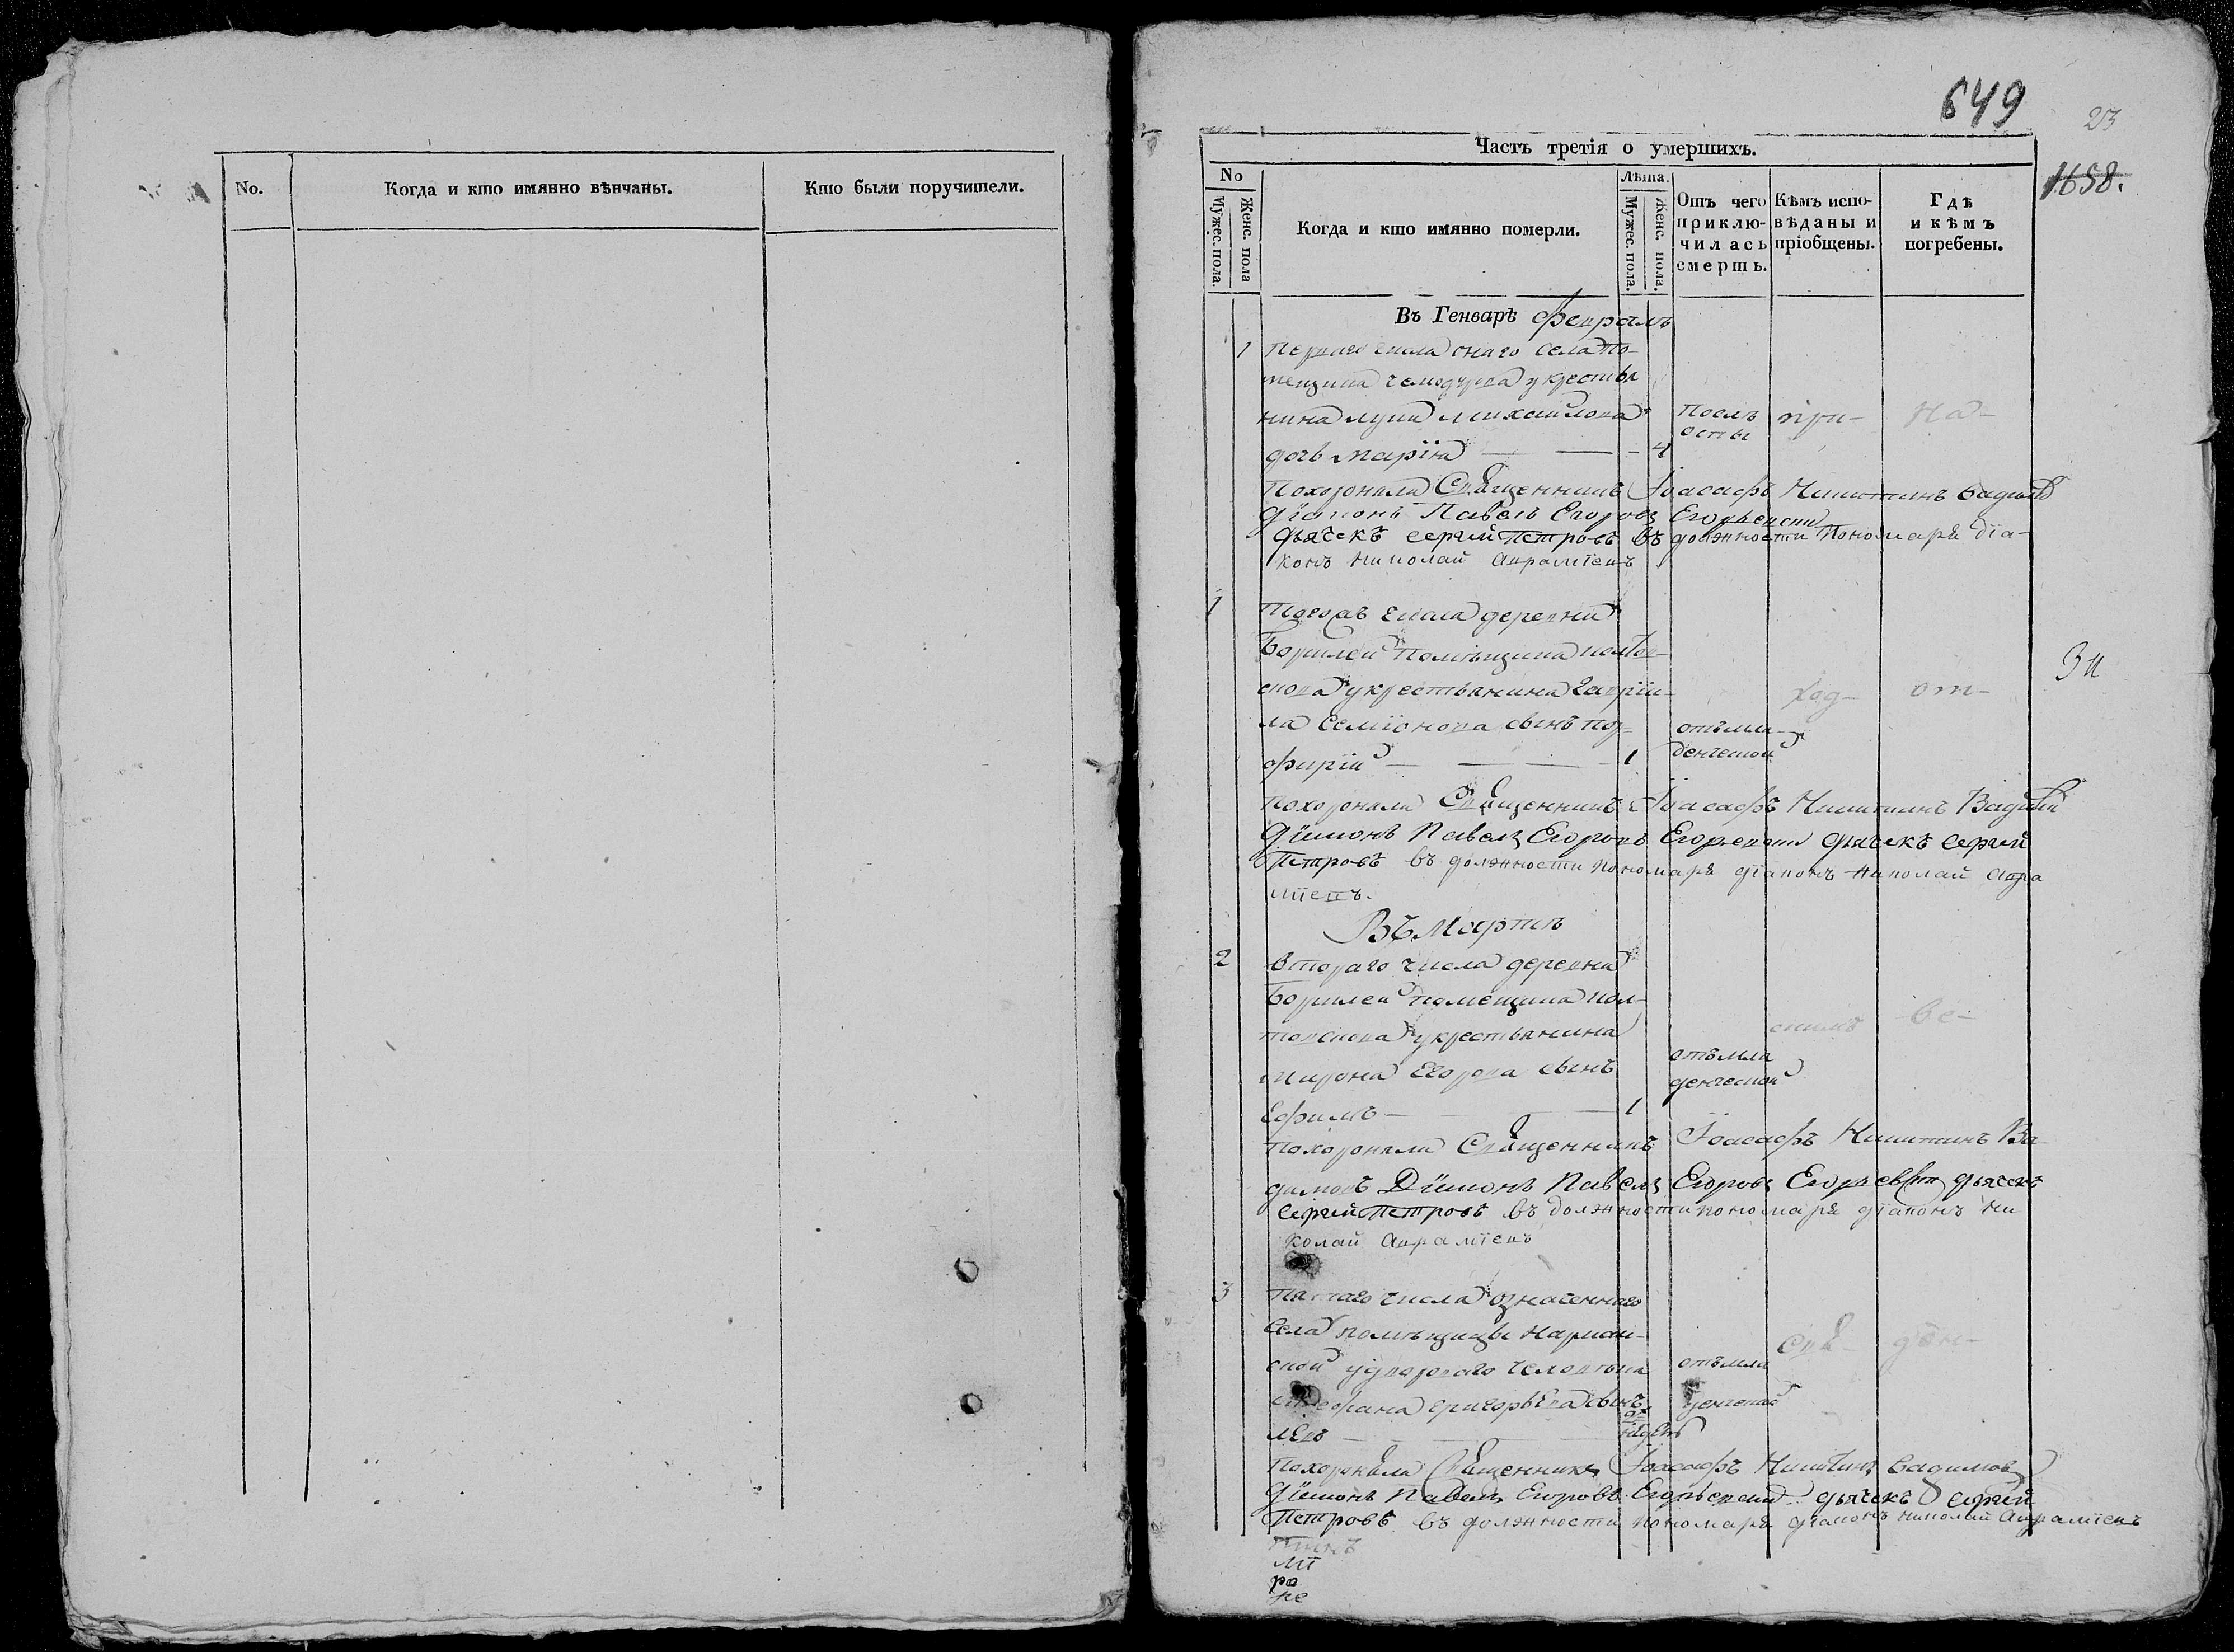 No.
Когда и кто имянно вѣнчаны.
Кто были поручители.
649
23
1658.
Часть третія о умершихъ.
No
Мужес. пола.
Женс. пола
Когда и кто имянно померли.
Лѣта.
Мужес. пола.
Женс. пола.
Отъ чего
приклю-
чилась
смерть.
Кѣмъ испо-
вѣданы и
пріобщены.
Гдѣ
и кѣмъ
погребены.
Въ Генварѣ Февралѣ
1 Перваго числа онаго села по-
мещика у крестья
нина Михайлова
дочь Марїя 4
оспы
при-
на-
Похоронили Священникъ Іоасафъ Никитинъ Вадимов
Дїаконъ Павелъ Егоровъ Егорьевски
дьячекъ Сергий Петровъ въ должности пономаря дїа-
конъ Николай
1 Тогожъ числа деревни
помѣщика
у крестьянина Гаврїи-
ла Семїонова сынъ пор-
фирїи 1
отъ мла-
денческой
ход-
от-
34
Похоронили Священникъ Іоасафъ Никитинъ Вадимов
Дїаконъ Павелъ Егоровъ Егорьевски дьячекъ Сергий
Петровъ въ должности пономаря дїаконъ Николай Авра
мїевъ.
Въ Мартѣ
2 втораго числа деревни
помещика пол-
у крестьянина
Мирона Егорова сынъ
Ефимъ 1
отъ мла
денческой
скимъ
ве-
Похоронили Священникъ Іоасафъ Никитинъ Ва-
димовъ Дїаконъ Павелъ Егоровъ Егорьевски дьячекъ
Сергий Петровъ въ должности пономаря дїаконъ Ни
колай Аврамїевъ
3 Пятаго числа означеннаго
села помѣщицы
ской у двороваго человѣка
Григорьева сынъ
левъ
отъ мла
денческой
свя-
ден-
Похоронили Священникъ Іоасафъ Никитинъ Вадимовъ
Дїаконъ Павелъ Егоровъ Егорьевски дьячекъ Сергий
Петровъ въ должности пономаря дїаконъ Николай Аврамїевъ
мї
ра
не